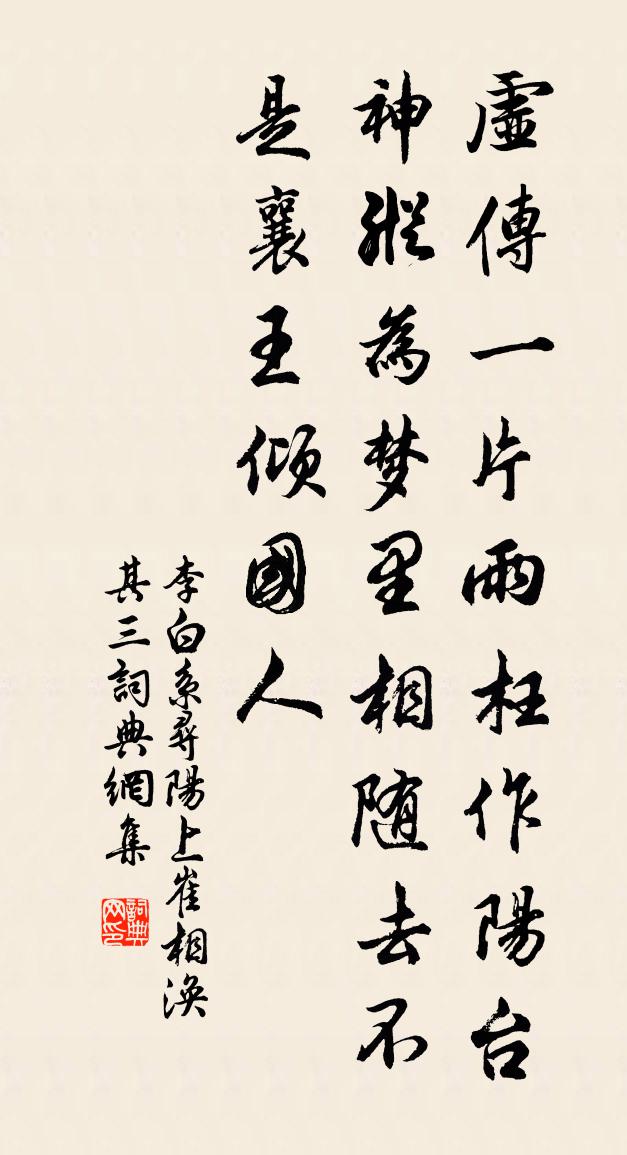 虛傳一片雨枉作陽台
神縱為梦里相随去不
是襄王傾國人
李白系尋陽上崔相渙
其三詞典網集
詞典网印